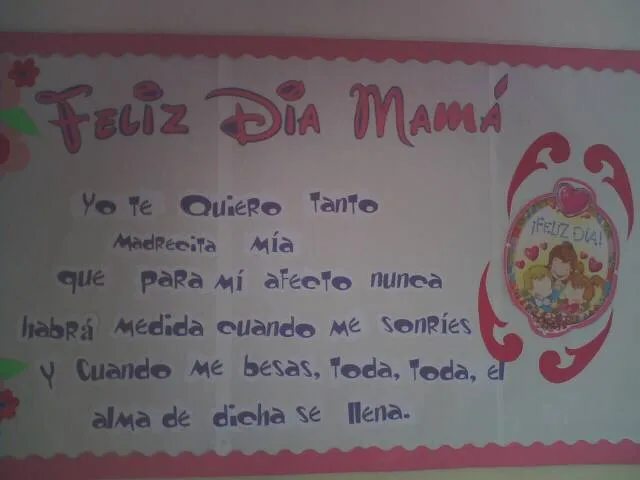 Feliz Dia Mamá
¡FELIZ DÍA!
Yo te Quiero tanto
Madrecita mía
que para mí afecto nunca
habrá medida cuando me sonríes
Y Cuando me besas, toda, toda, el
alma de dicha se llena.